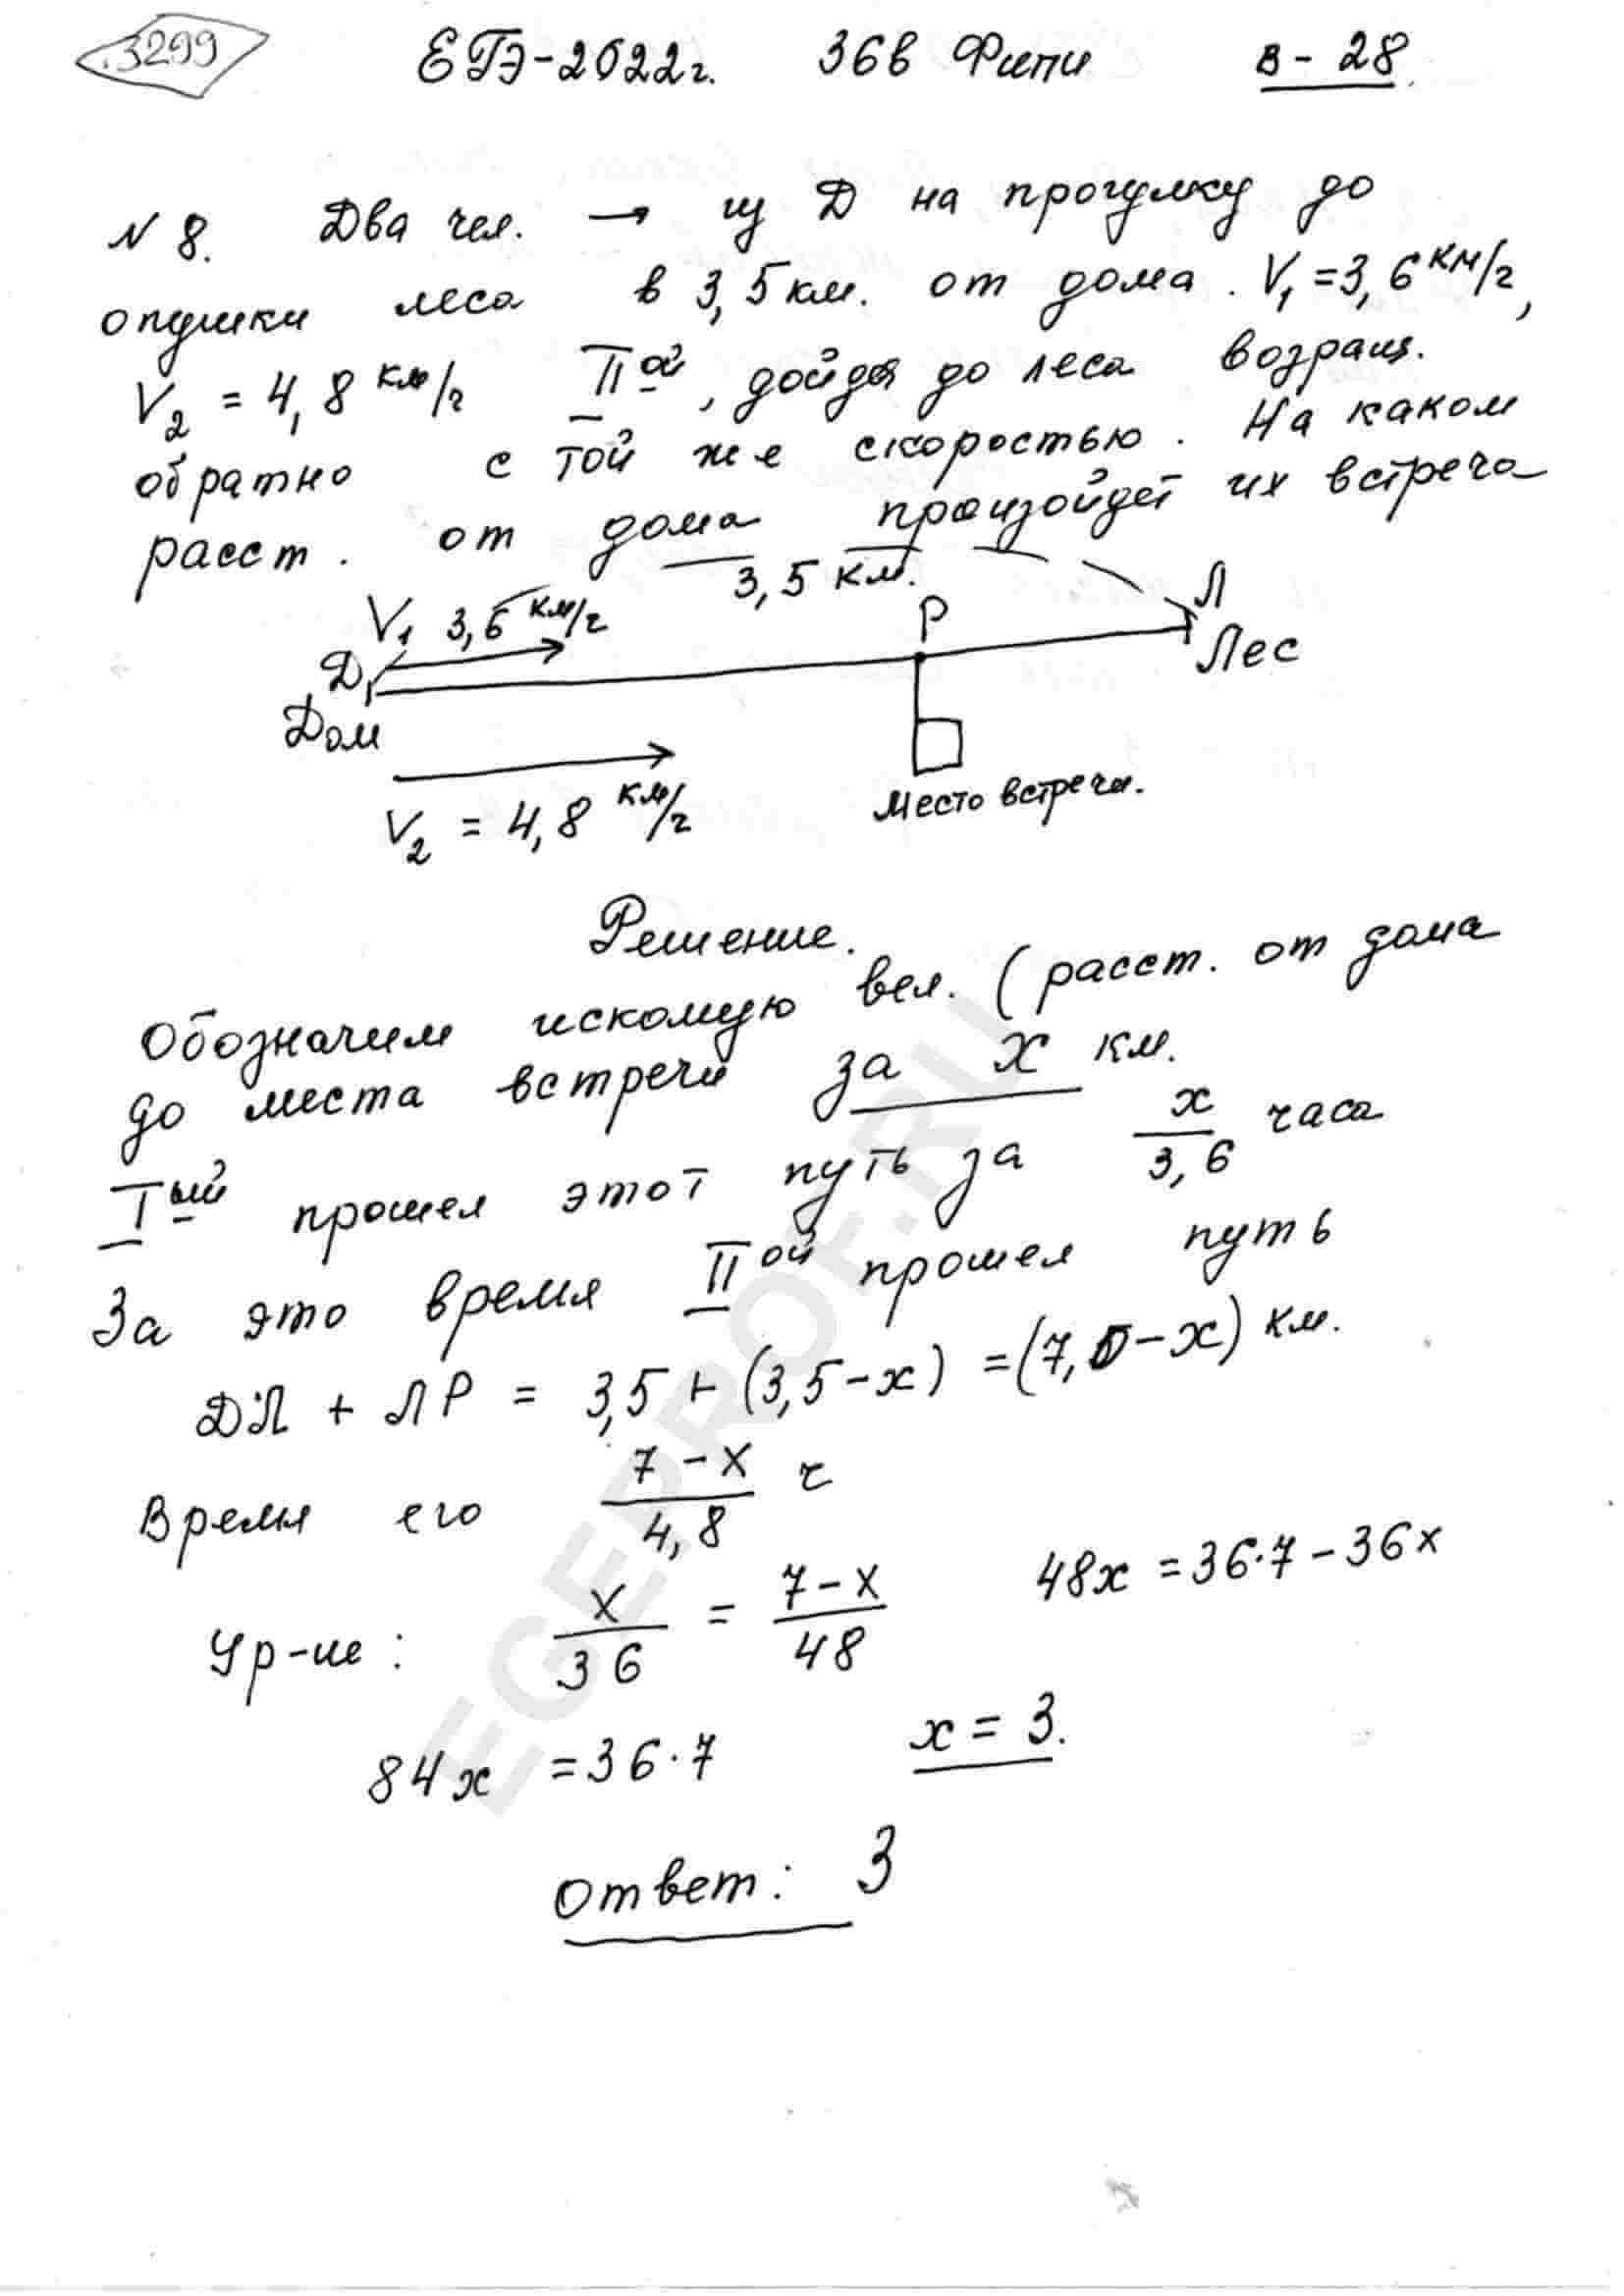 3299 ЕГЭ-2022г. 36в Фипи в - 28.
№ 8. Два чел. → из Д на прогулку до
опушки леса в 3,5 км. от дома. V₁ = 3,6 км/г,
V₂ = 4,8 км/г IIой, дойдя до леса возращ.
обратно с той же скоростью. На каком
расст. от дома произойдет их встреча
3,5 км.
V₁ 3,6 км/г
Д Р Л
Дом Лес
V₂ = 4,8 км/г Место встречи.
Решение.
Обозначим искомую вел. (расст. от дома
до места встречи за x км.
Iый прошел этот путь за x/3,6 часа
За это время IIой прошел путь
ДЛ + ЛР = 3,5 + (3,5 - x) = (7,0 - x) км.
Время его (7 - x)/4,8 г
Ур-ие: x/36 = (7 - x)/48 48x = 36·7 - 36x
84x = 36·7 x = 3.
Ответ: 3
EGEPROF.RU